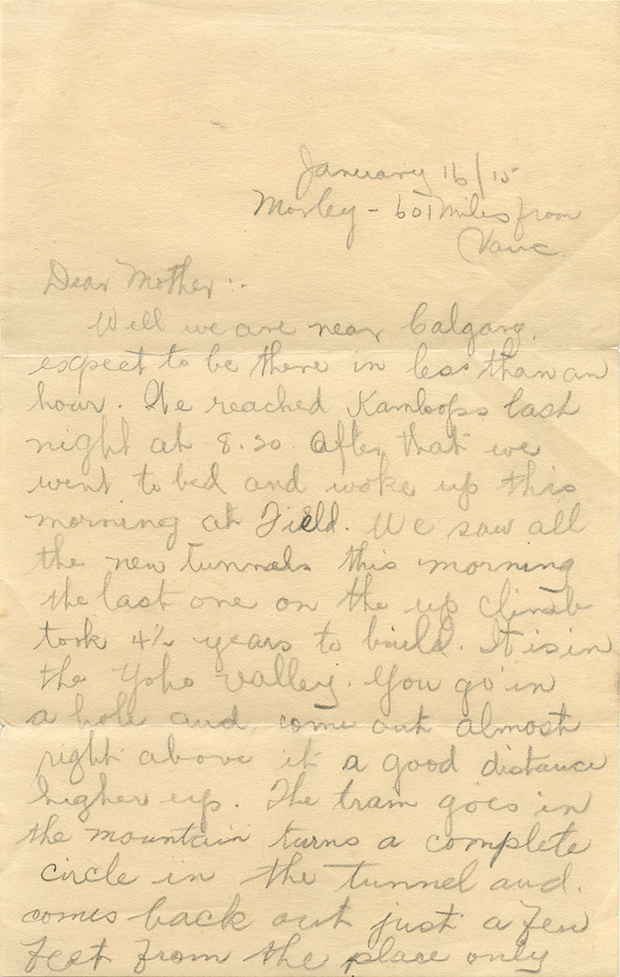 January 16/15
Morley - 601 miles from
Vanc.
Dear Mother:-
Well we are near Calgary,
expect to be there in less than an
hour. We reached Kamloops last
night at 8.30. After that we
went to bed and woke up this
morning at Field. We saw all
the new tunnels this morning
the last one on the up climb
took 4½ years to build. It is in
the Yoho valley. You go in
a hole and come out almost
right above it a good distance
higher up. The train goes in
the mountain turns a complete
circle in the tunnel and.
comes back out just a few
feet from the place only